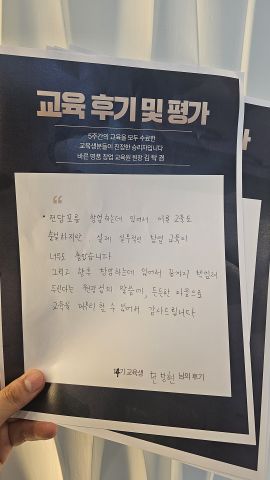 교육 후기 및 평가
5주간의 교육을 모두 수료한
교육생분들이 진정한 승리자입니다
바른 명품 창업 교육원 원장 김 탁 겸
“
창업하는데 있어서 이론 교육도
출중하지만, 실제 실무적인 창업 교육이
너무도 좋았습니다
그리고 향후 창업하는데 있어서 끝까지 책임져
주신다는 원장님의 말씀에, 든든한 마음으로
교육을 마무리 할 수 있어서 감사드립니다
14기 교육생 님의 후기